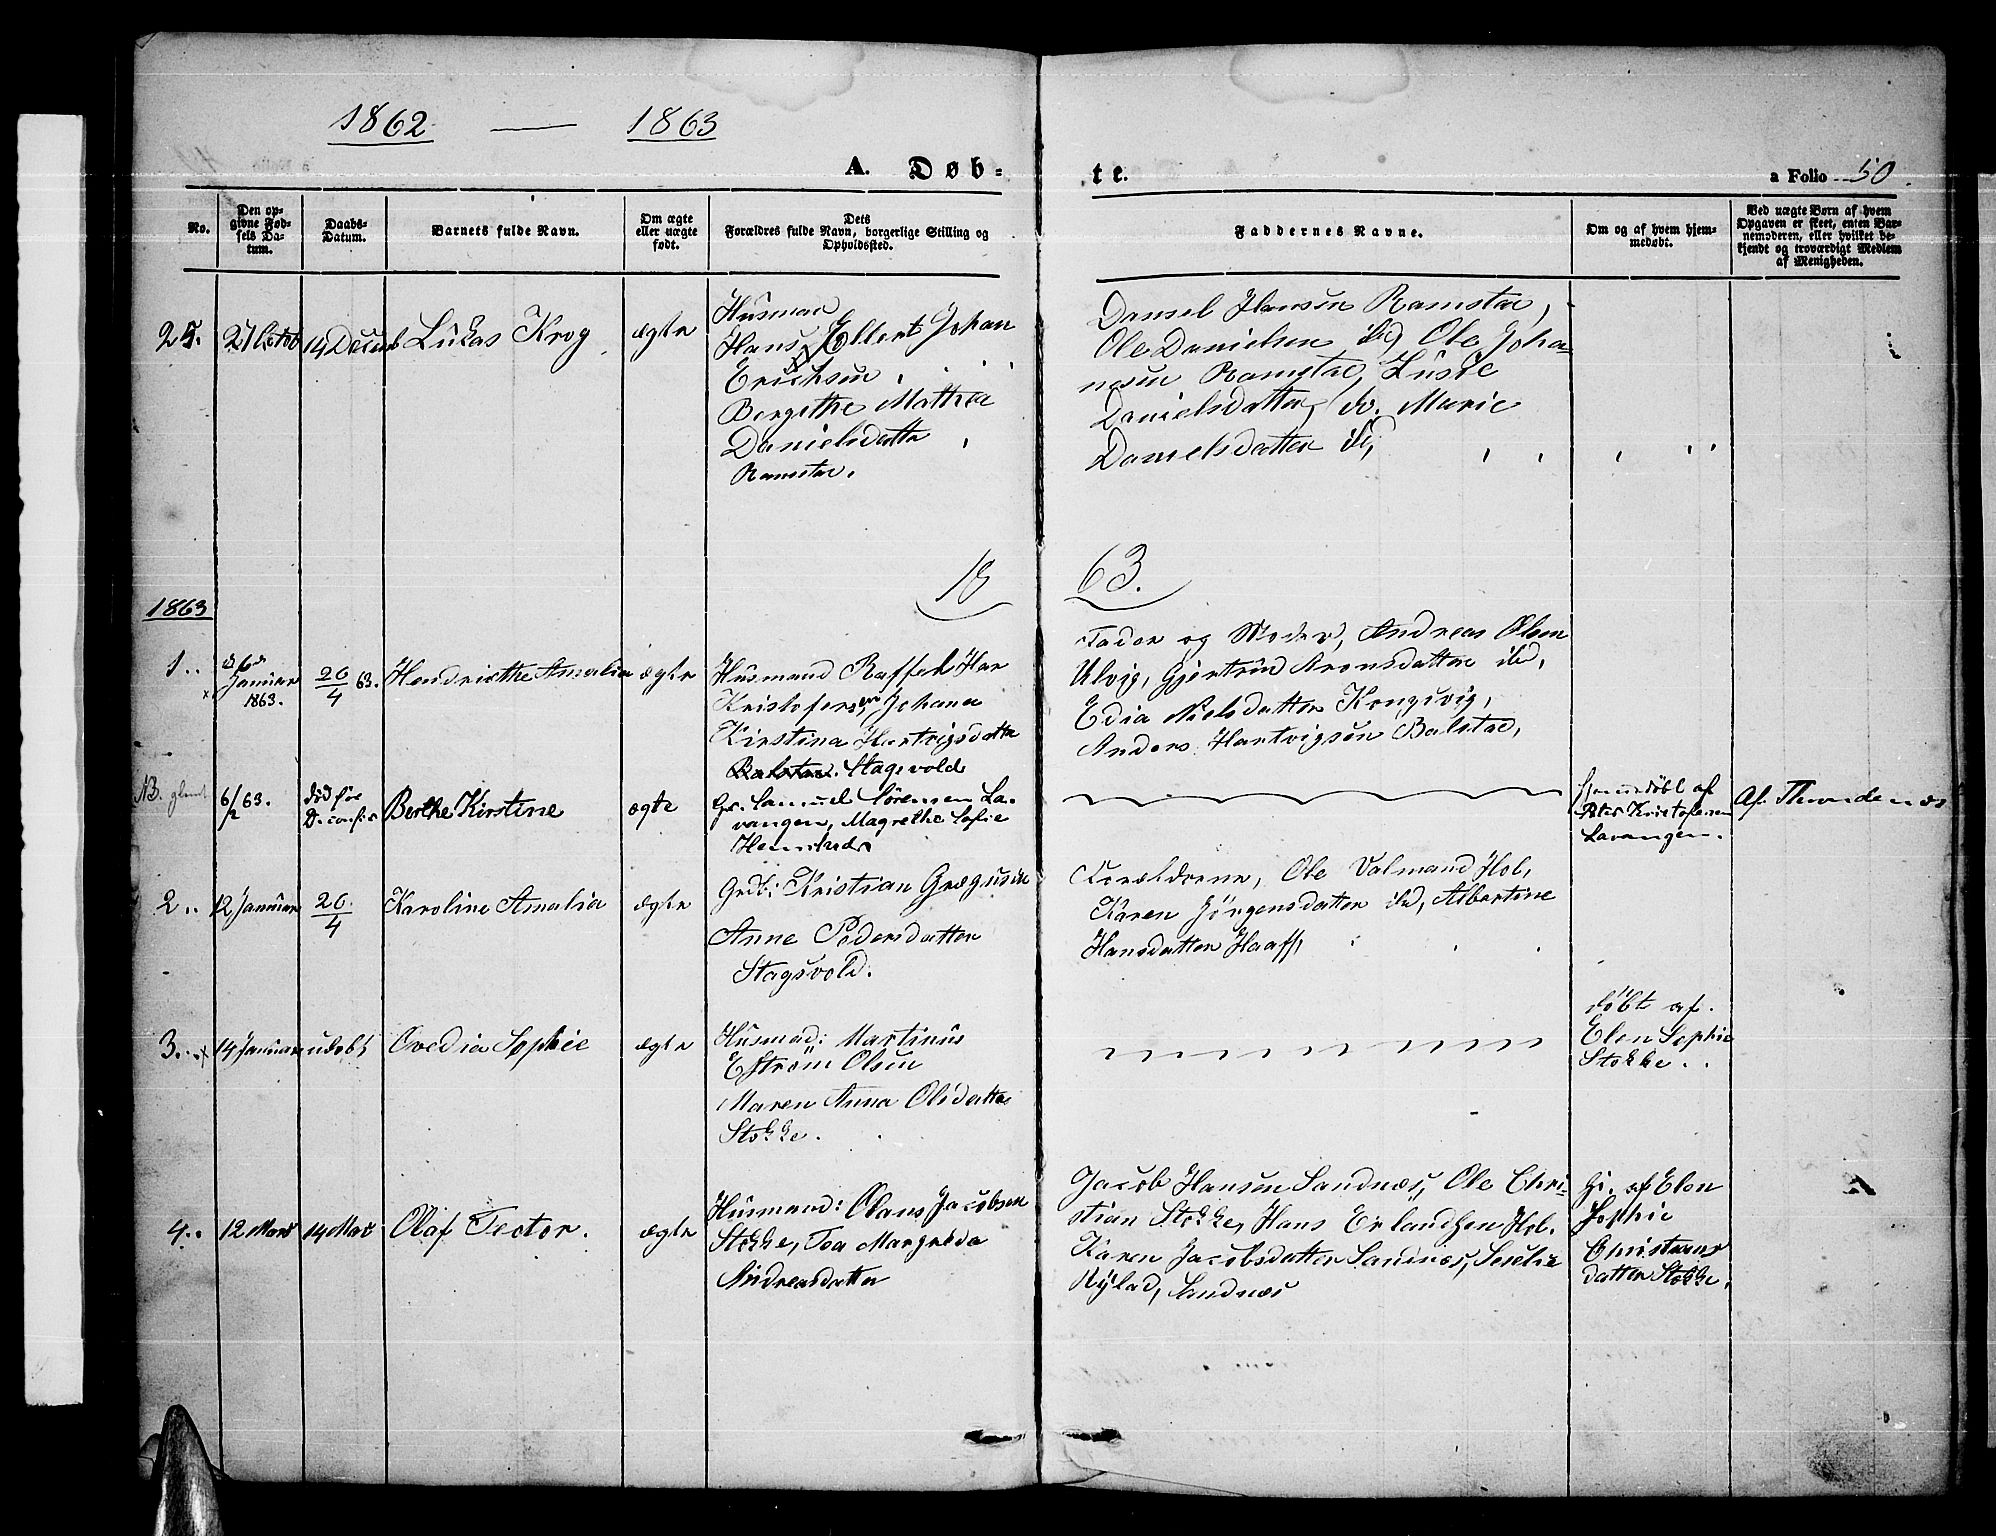 1862 — 1863
A. Døb-
te.
a Folio 50.
No.
Den opgivne Fødsels Datum.
Daabs-Datum.
Barnets fulde Navn.
Om ægte eller uægte født.
Dets Forældres fulde Navn, borgerlige Stilling og Opholdssted.
Faddernes Navne.
Om og af hvem hjemmedøbt.
Ved uægte Børn af hvem Opgaven er skeet, enten Barnemoderen, eller hvilket bekjendt og troværdigt Medlem af Menigheden.
25. 27 Octob 14 Decemb Lukas Krog ægte
Husman
Hans Ellert Johan
Erichsen
Bergethe Mathea
Danielsdatter
Ramstae.
Daniel Hansen Ramstae,
Ole Danielsen ibd, Ole Joha-
nesen Ramstae, Lusie
Danielsdatter, do. Marie
Danielsdatter ibd,
18 63.
1863
1.. Januar 1863. 26/4 63. Hendrikthe Amalia ægte
Husmand Raffael Har
Kristofersen, Johana
Kirstina Hartvigsdatter
Balstae. Stagsvold
Fader og Moder, Andreas Olsen
Ulvig, Gjertrud Aronsdatter ibd,
Edia Nielsdatter Kongsvig,
Anders Hartvigsen Balstae,
NB. glemt 6/2 63. død før Berthe Kirstine ægte
Gr. Samuel Sørensen La-
vangen, Magrethe Sofie
Hjemmedøbt af
Peter Kristofersen
Lavangen.
Af Thrundenæs
2.. 12 Januar 26/4 Karoline Amalia ægte
Grdb: Kristian Grægusen
Anne Pedersdatter
Stagsvold.
Forældrene, Ole Valmand Hol,
Karen Jörgensdatter ibd, Albertine
Hansdatter Haaff,
3... x 14 Januar udøbt Ovedia Sophie ægte
Husmad: Martinus
Efström Olsen
Maren Anna Olsdatter
Stokke.
döbt af.
Elen Sophie
Stokke..
4.. 12 Mars 14 Mai Olaf Tector. ægte
Husmand: Olaus Jacobsen
Stokke, Toa Margreda
Andreasdatter
Jacob Hansen Sandnæs, Ole Chri-
stian Stokke, Hans Erlandsen Hol.
Karen Jacobsdatter Sandnæs, Seselie
Nylad, Sandnæs
Hj. af Elen
Sophie
Christians
datter Stokke.